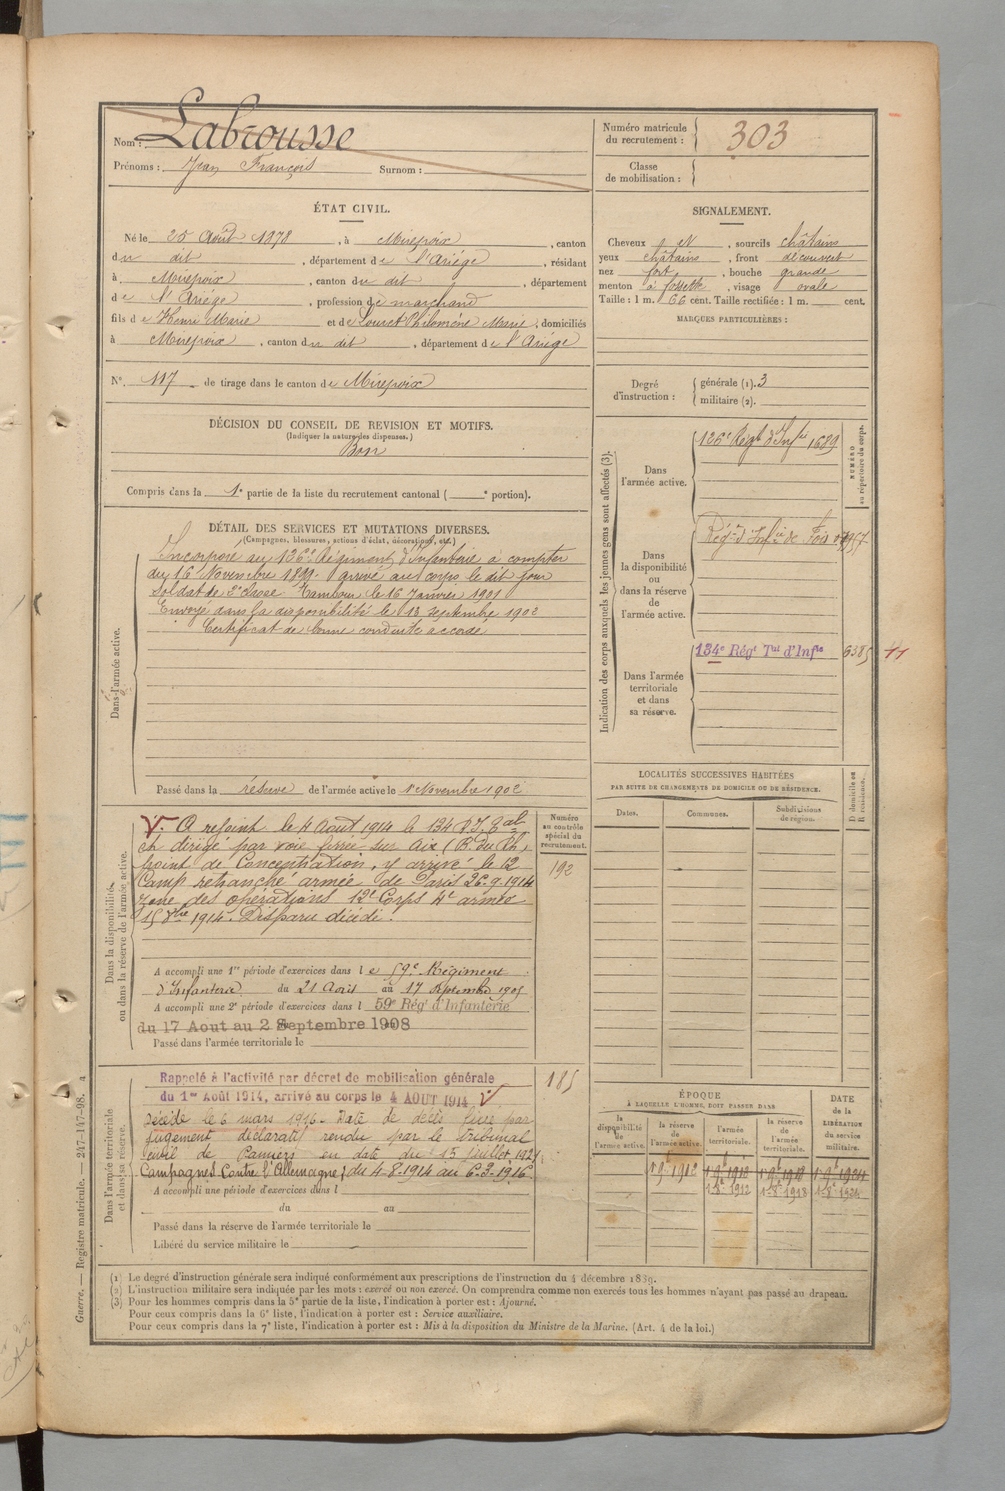 Nom : Labrousse
Prénoms : Jean François Surnom :
Numéro matricule
du recrutement : 303
Classe
de mobilisation :
ÉTAT CIVIL.
Né le 25 Août 1878, à Mirepoix, canton
du dit, département de l'Ariège, résidant
à Mirepoix, canton du dit, département
de l'Ariège, profession de marchand
fils de Henri Marie et de Philomène Marie, domiciliés
à Mirepoix, canton du dit, département de l'Ariège
N° 117 de tirage dans le canton de Mirepoix
DÉCISION DU CONSEIL DE REVISION ET MOTIFS.
(Indiquer la nature des dispenses.)
Bon
Compris dans la 1e partie de la liste du recrutement cantonal ( e portion).
DÉTAIL DES SERVICES ET MUTATIONS DIVERSES.
(Campagnes, blessures, actions d'éclat, décorations, etc.)
Dans l'armée active.
Incorporé au 126e Régiment d'Infanterie à compter
du 16 Novembre 1899. arrivé au corps le dit jour
Soldat de 2e classe Tambour le 16 Janvier 1901
Envoyé dans la disponibilité le 13 Septembre 1902
Certificat de bonne conduite accordé
Passé dans la réserve de l'armée active le 1 Novembre 1902
Dans la disponibilité
ou dans la réserve de l'armée active.
V. A rejoint le 4 Août 1914 le 134 R.I.
dirigé par voie ferrée sur Aix (B. du Rh)
point de Concentration, y arrivé le 12
Camp retranché armée de Paris 26.9.1914
zone des opérations 12e Corps 4e armée
1914. Disparu décédé.
Numéro
au contrôle
spécial du
recrutement.
192
A accompli une 1re période d'exercices dans le 59e Régiment
d'Infanterie du 21 Août au 17 Septembre 1905
A accompli une 2e période d'exercices dans l 59e Régt d'Infanterie
du 17 Aout au 2 Septembre 1908
Passé dans l'armée territoriale le
Dans l'armée territoriale
et dans sa réserve.
Rappelé à l'activité par décret de mobilisation générale
du 1er Août 1914, arrivé au corps le 4 AOUT 1914 V
185
Décédé le 6 mars 1916. Date de décès fixée par
jugement déclaratif rendu par le tribunal
civil de Pamiers en date du 15 juillet 1921
Campagnes Contre l'Allemagne du 4-8-1914 au 6-3-1916
A accompli une période d'exercices dans l
du au
Passé dans la réserve de l'armée territoriale le
Libéré du service militaire le
SIGNALEMENT.
Cheveux et, sourcils châtains
yeux châtains, front découvert
nez fort, bouche grande
menton à fossette, visage ovale
Taille : 1 m. 66 cent. Taille rectifiée : 1 m. cent.
MARQUES PARTICULIÈRES :
Degré
d'instruction :
générale (1). 3
militaire (2).
Indication des corps auxquels les jeunes gens sont affectés (3).
NUMÉRO
au répertoire du corps.
Dans
l'armée active.
126e Régt d'Infie 1689
Dans
la disponibilité
ou
dans la réserve
de
l'armée active.
Régt d'Infie de Foix
Dans l'armée
territoriale
et dans
sa réserve.
134e Régt Tal d'Infie 6385
LOCALITÉS SUCCESSIVES HABITÉES
PAR SUITE DE CHANGEMENTS DE DOMICILE OU DE RÉSIDENCE.
Dates.
Communes.
Subdivisions
de région.
D domicile ou
R résidence.
ÉPOQUE
À LAQUELLE L'HOMME DOIT PASSER DANS
DATE
de la
LIBÉRATION
du service
militaire.
la
disponibilité
de
l'armée active.
la réserve
de
l'armée active.
l'armée
territoriale.
la réserve
de
l'armée
territoriale.
1-8-1912 1-8-1918
(1) Le degré d'instruction générale sera indiqué conformément aux prescriptions de l'instruction du 4 décembre 1889.
(2) L'instruction militaire sera indiquée par les mots : exercé ou non exercé. On comprendra comme non exercés tous les hommes n'ayant pas passé au drapeau.
(3) Pour les hommes compris dans la 5e partie de la liste, l'indication à porter est : Ajourné.
Pour ceux compris dans la 6e liste, l'indication à porter est : Service auxiliaire.
Pour ceux compris dans la 7e liste, l'indication à porter est : Mis à la disposition du Ministre de la Marine. (Art. 4 de la loi.)
Guerre. — Registre matricule. — 247-147-98.